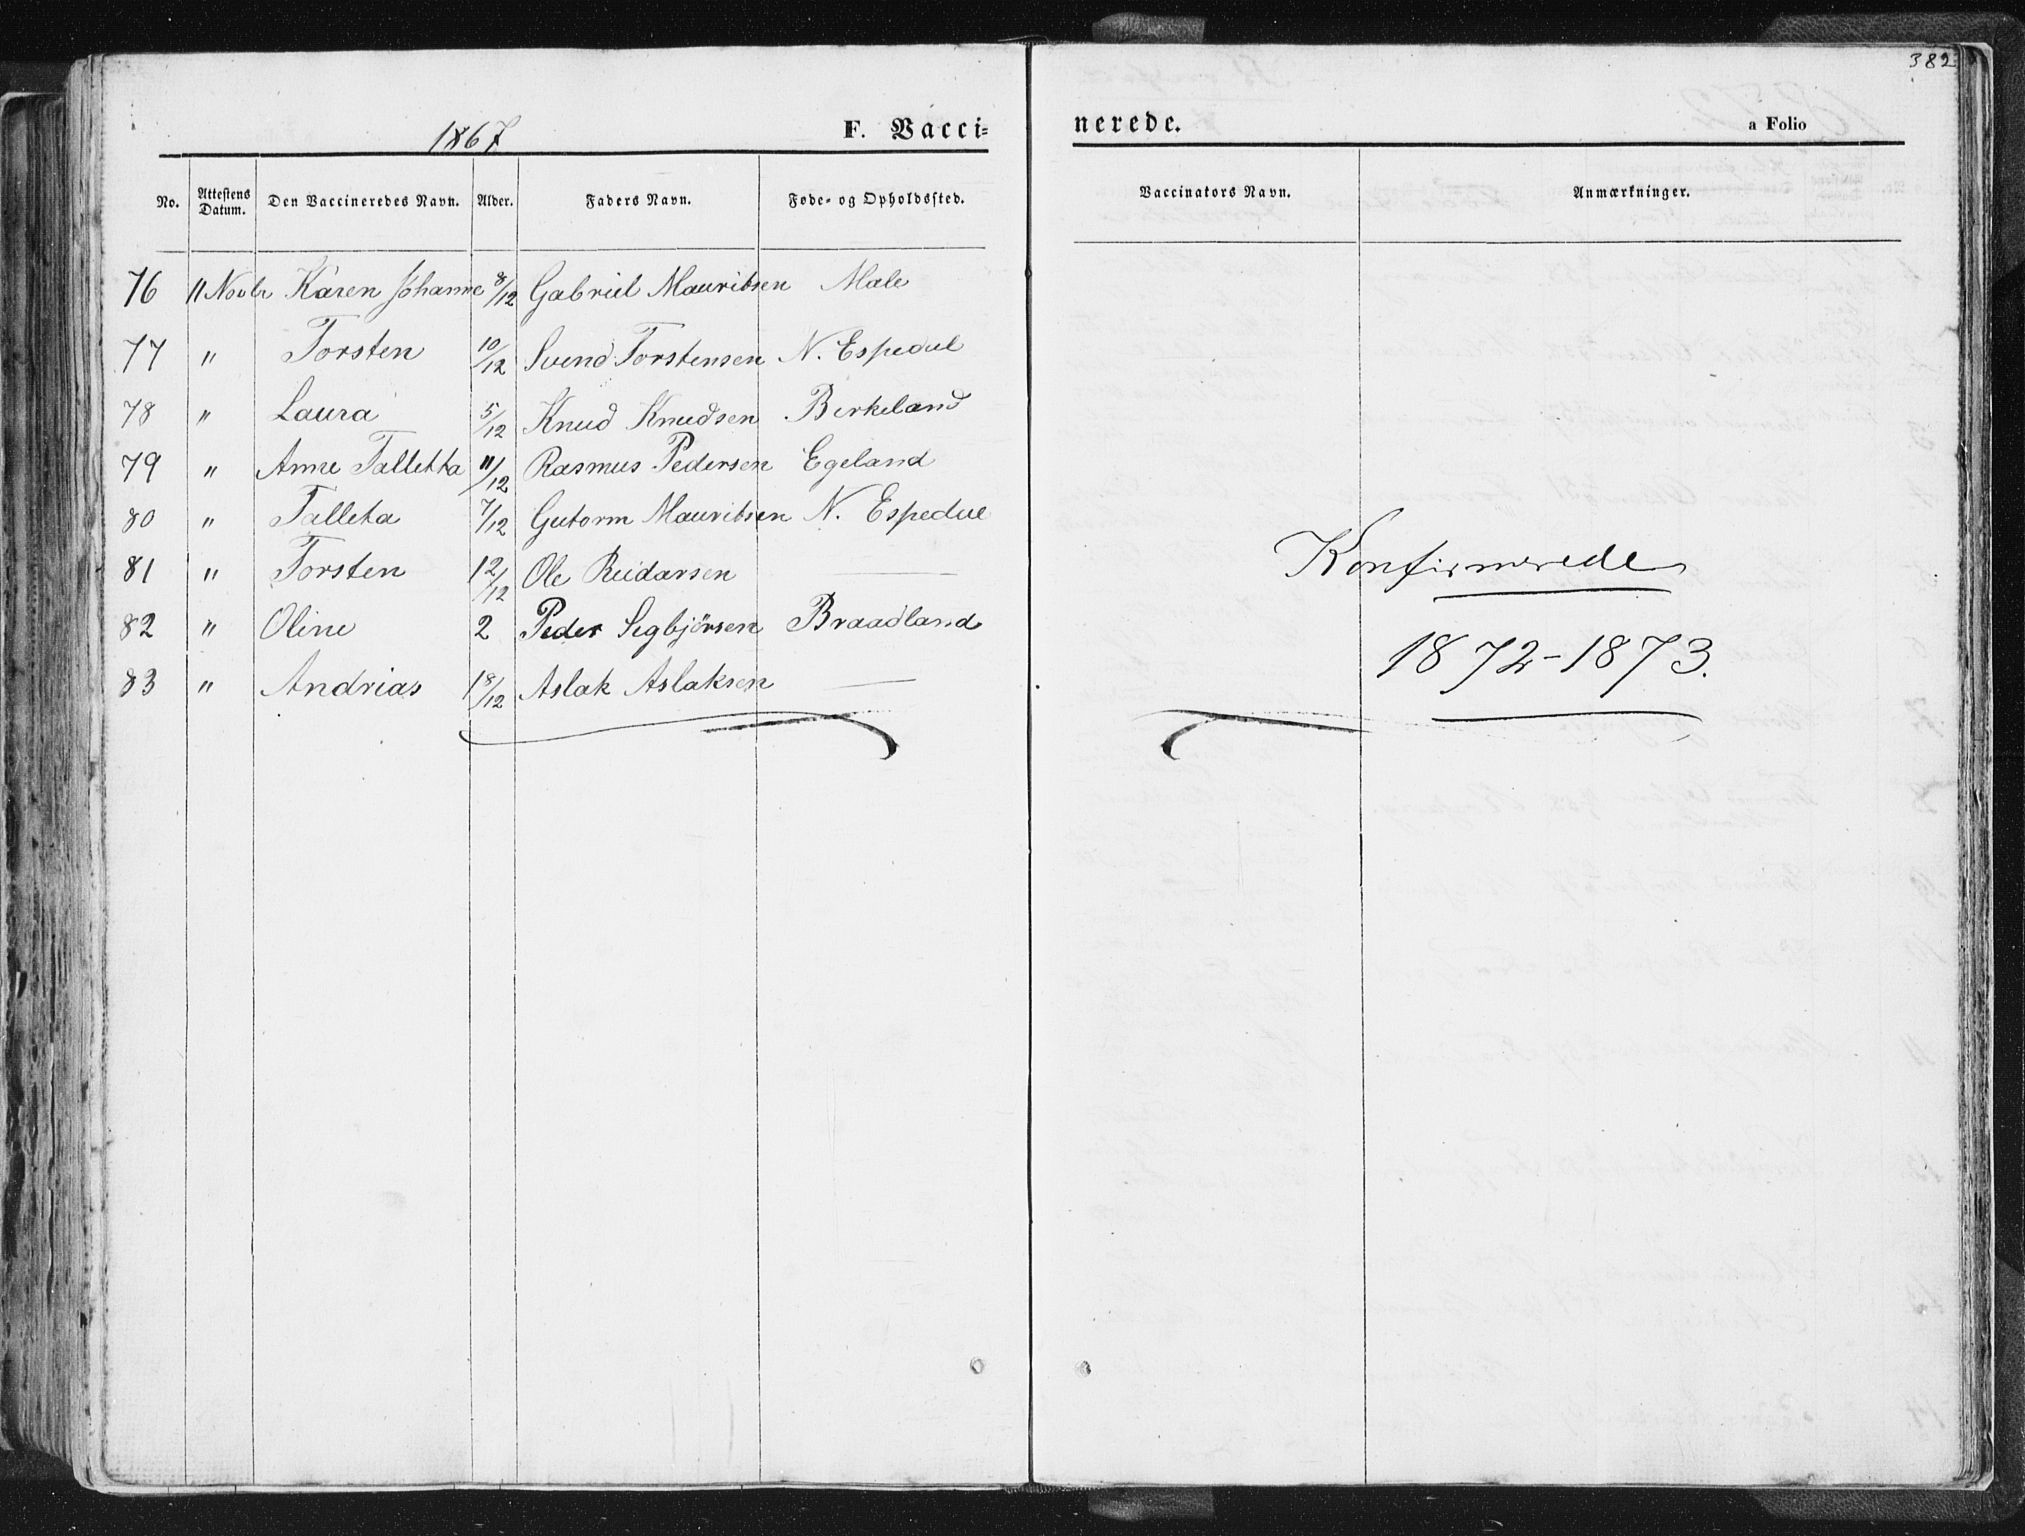 382
1867 F. Vacci=nerede. a Folio
No. Attestens Datum. Den Vaccineredes Navn. Alder. Faders Navn. Føde- og Opholdssted. Vaccinators Navn. Anmærkninger.
76 11 Novbr Karen Johanne 8/12 Gabriel Mauritsen Male
77 " Torsten 10/12 Svend Torstensen N. Espedal
78 " Laura 5/12 Knud Knudsen Birkeland
79 " Anne Talletta 11/12 Rasmus Pedersen Egeland
80 " Talleta 7/12 Gutorm Mauritsen N. Espedal
81 " Torsten 12/12 Ole Reidarsen —
82 " Oline 2 Peder Segbjørsen Braadland
83 " Andrias 18/12 Aslak Aslaksen —
Konfirmerede
1872-1873.